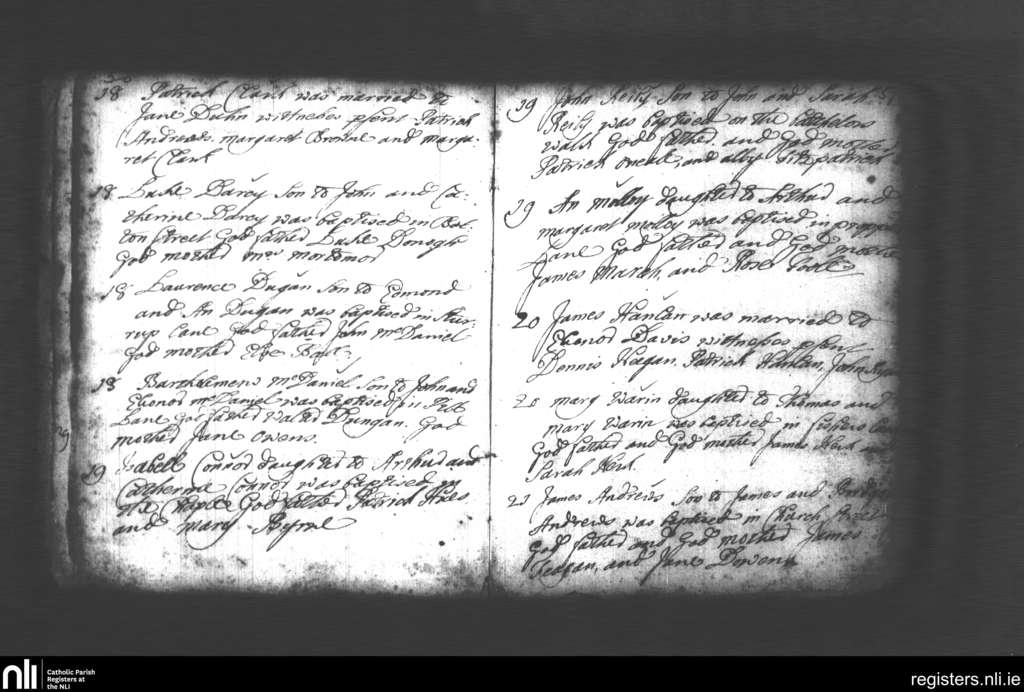 18 Patrick Clark was married to
Jane Duhn witnesses psent Patrick
Andrews. margaret Browne and marga-
ret Clark
18 Luke Darcy Son to John and Ca-
therine Darcy was baptised in Bol-
ton street God father Luke Donogh
God mother Mrs
18 Laurence Dugan Son to Edmond
and An Dugan was baptised in
Lane God father John McDaniel
God mother
18 Barthlemew McDaniel Son to John and
Elenor McDaniel was baptised in
Lane God father Walter Dungan. God
mother Jane Owens.
19 Isabell Connor daughter to Arthur and
Catherine Connor was baptised in
the Chaple God father Patrick
and mary Byrne
19 John Reily Son to John and Sarah
Reily was baptised on the Batchelors
walk God father. and God mother
Patrick oneale, and fitzpatrick
19 An molloy daughter to Arthur and
margaret molloy was baptised in
Lane God father and God mother
James March, and Rose
20 James Hanlan was married to
Elenor Davis witnesses psent
Dennis Hagan, Patrick Hanlan, John
20 mary Warin daughter to Thomas and
mary Warin was baptised in fishers
God father and God mother James and
Sarah
21 James Andrews Son to James and
Andrews was baptised in Church
God father and God mother James
Teagan, and Jane
nli
Catholic Parish
Registers at
the NLI
registers.nli.ie